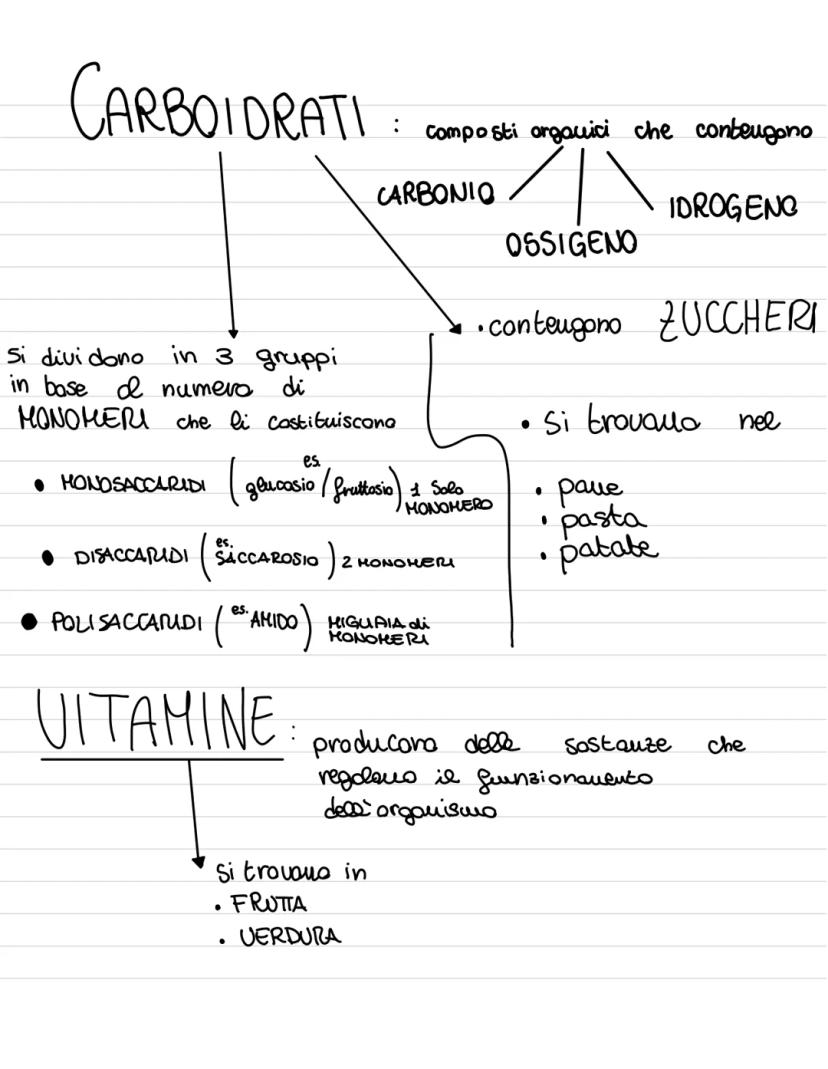 CARBOIDRATI : composti organici che contengono
CARBONIO
OSSIGENO
IDROGENO
• contengono ZUCCHERI
Si dividono in 3 gruppi
in base al numero di
MONOMERI che li costituiscono
• MONOSACCARIDI (es. glucosio / fruttosio) 1 solo
MONOMERO
• DISACCARIDI (es. SACCAROSIO) 2 MONOMERI
• POLISACCARIDI (es. AMIDO) MIGLIAIA di
MONOMERI
• Si trovano nel
• pane
• pasta
• patate
VITAMINE : producono delle sostanze che
regolano il funzionamento
dell'organismo
Si trovano in
• FRUTTA
• VERDURA